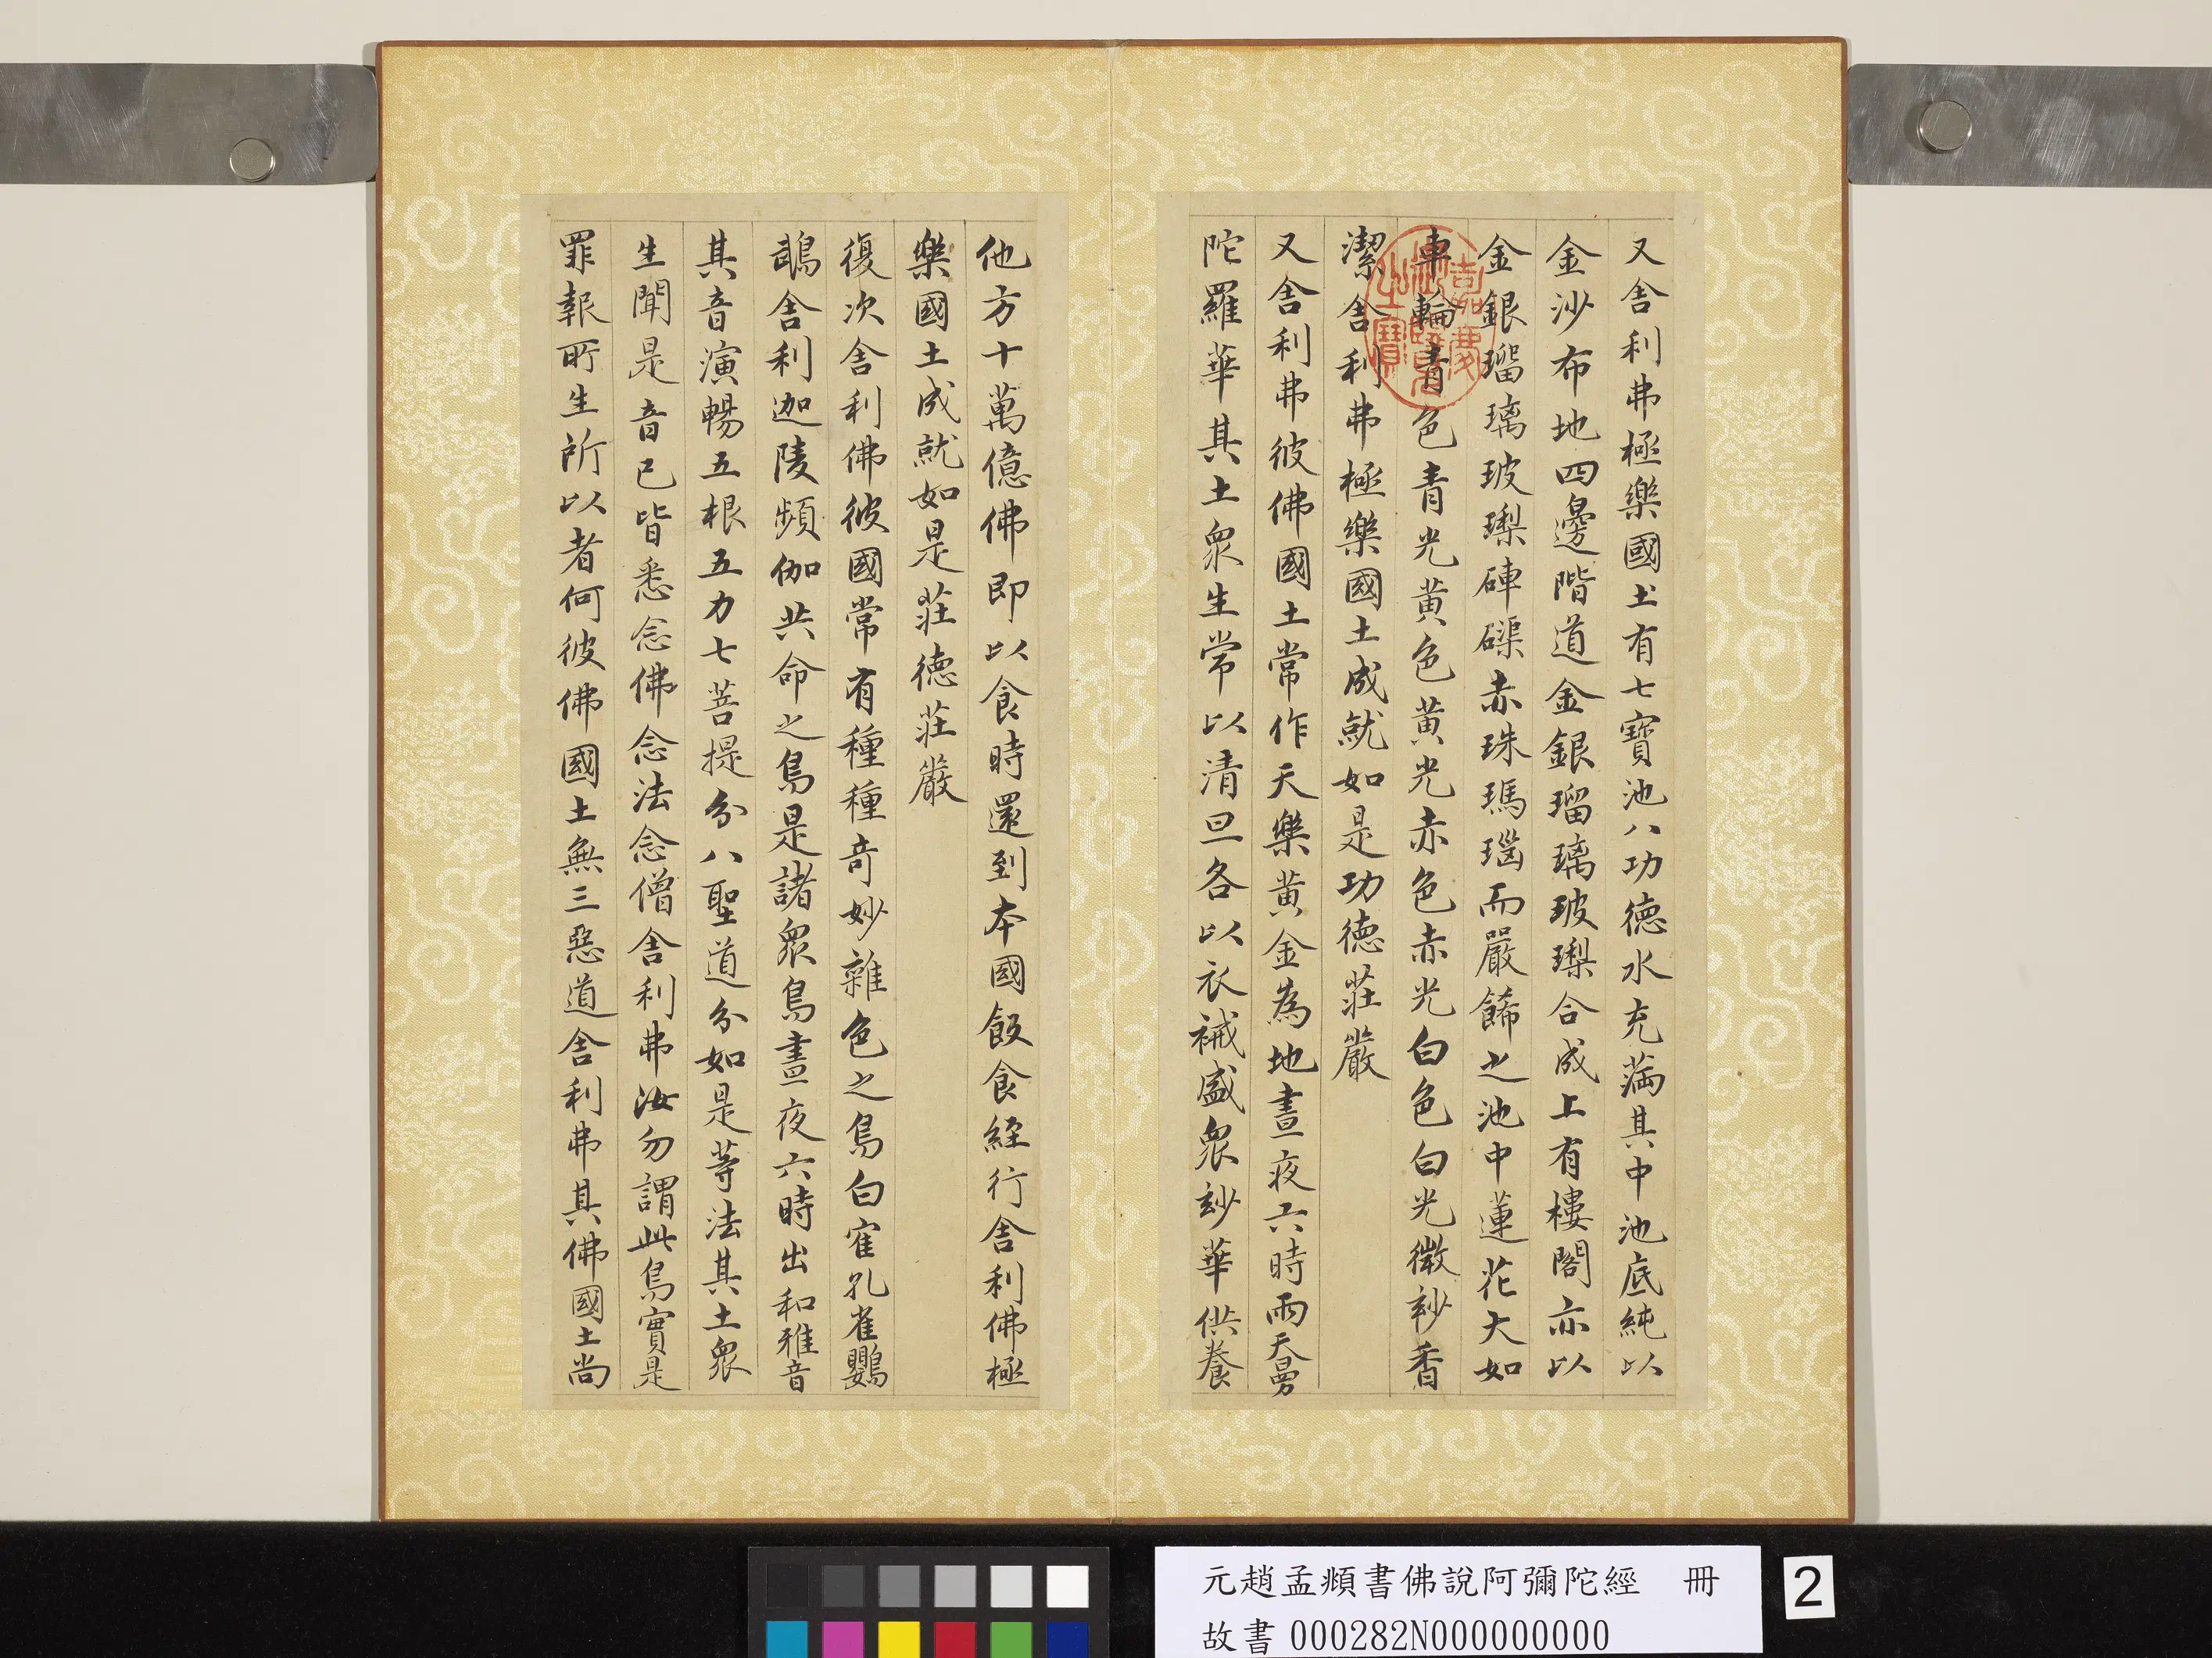 又舍利弗極樂國土有七寶池八功德水充滿其中池底純以
金沙布地四邊階道金銀瑠璃玻瓈合成上有樓閣亦以
金銀瑠璃玻瓈硨磲赤珠瑪瑙而嚴餙之池中蓮花大如
車輪青色青光黃色黃光赤色赤光白色白光微玅香
潔舍利弗極樂國土成就如是功德莊嚴
又舍利弗彼佛國土常作天樂黃金為地晝夜六時雨天曼
陀羅華其土眾生常以清旦各以衣裓盛眾玅華供養
他方十萬億佛即以食時還到本國飯食經行舍利佛極
樂國土成就如是莊德莊嚴
復次舍利佛彼國常有種種奇妙雜色之鳥白寉孔雀鸚
鵡舍利迦陵頻伽共命之鳥是諸眾鳥晝夜六時出和雅音
其音演暢五根五力七菩提分八聖道分如是等法其土眾
生聞是音已皆悉念佛念法念僧舍利弗汝勿謂此鳥實是
罪報所生所以者何彼佛國土無三惡道舍利弗其佛國土尚
嘉慶御覽之寶
元趙孟頫書佛說阿彌陀經 冊
故書 000282N000000000
2